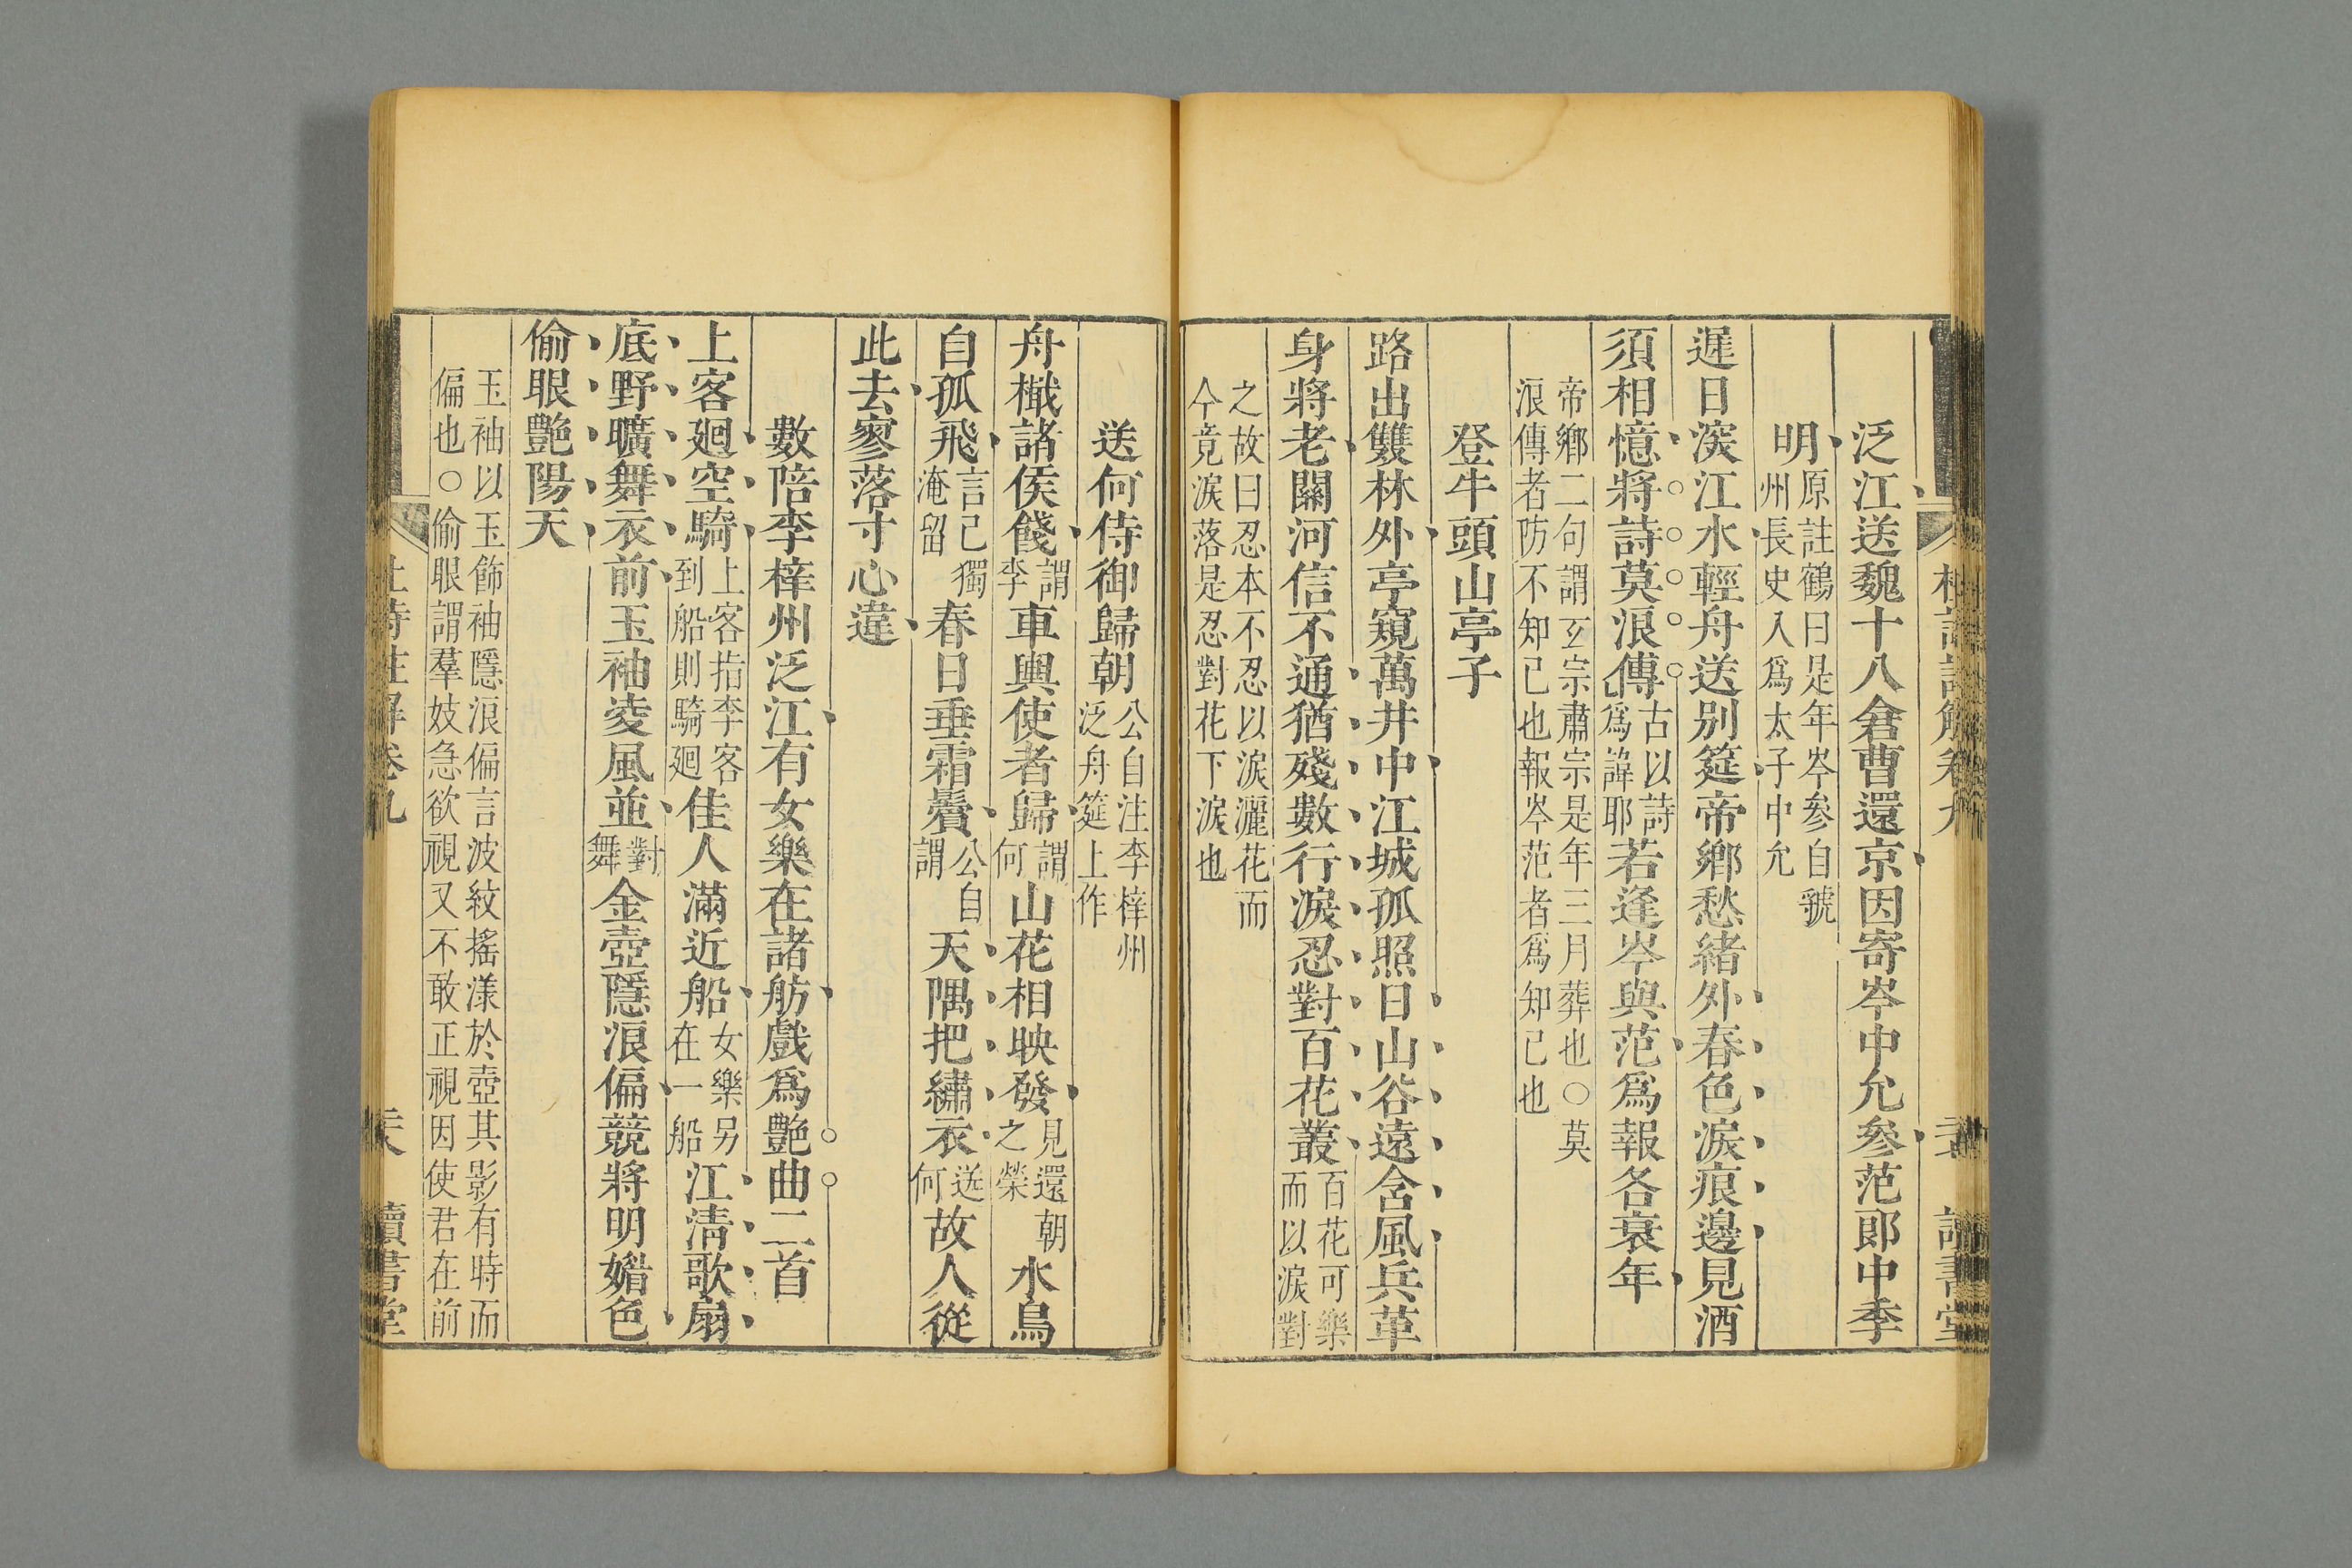 泛江送魏十八倉曹還京因寄岑中允參范郎中季
明原註鶴曰是年岑參自虢州長史入爲太子中允
遲日深江水輕舟送别筵帝鄉愁緒外春色淚痕邊見酒
須相憶將詩莫浪傳古以詩爲諱耶若逢岑與范爲報各衰年
帝鄉二句謂玄宗肅宗是年三月葬也○莫
浪傳者防不知己也報岑范者爲知己也
登牛頭山亭子
路出雙林外亭窺萬井中江城孤照日山谷遠含風兵革
身將老關河信不通猶殘數行淚忍對百花叢百花可樂而以淚對
之故曰忍本不忍以淚灑花而
今竟淚落是忍對花下淚也
送何侍御歸朝公自注李梓州泛舟筵上作
舟檝諸侯餞謂李車輿使者歸謂何山花相映發見還朝之榮水鳥
自孤飛言己獨淹留春日垂霜鬢公自謂天隅把繡衣送何故人從
此去寥落寸心違
數陪李梓州泛江有女樂在諸舫戲爲艶曲二首
上客廻空騎上客指李客到船則騎廻佳人滿近船女樂另在一船江清歌扇
底野曠舞衣前玉袖凌風並對舞金壺隱浪偏競將明媚色
偷眼艶陽天
玉袖以玉飾袖隱浪偏言波紋搖漾於壺其影有時而
偏也○偷眼謂羣妓急欲視又不敢正視因使君在前
杜詩註解卷九
讀書堂